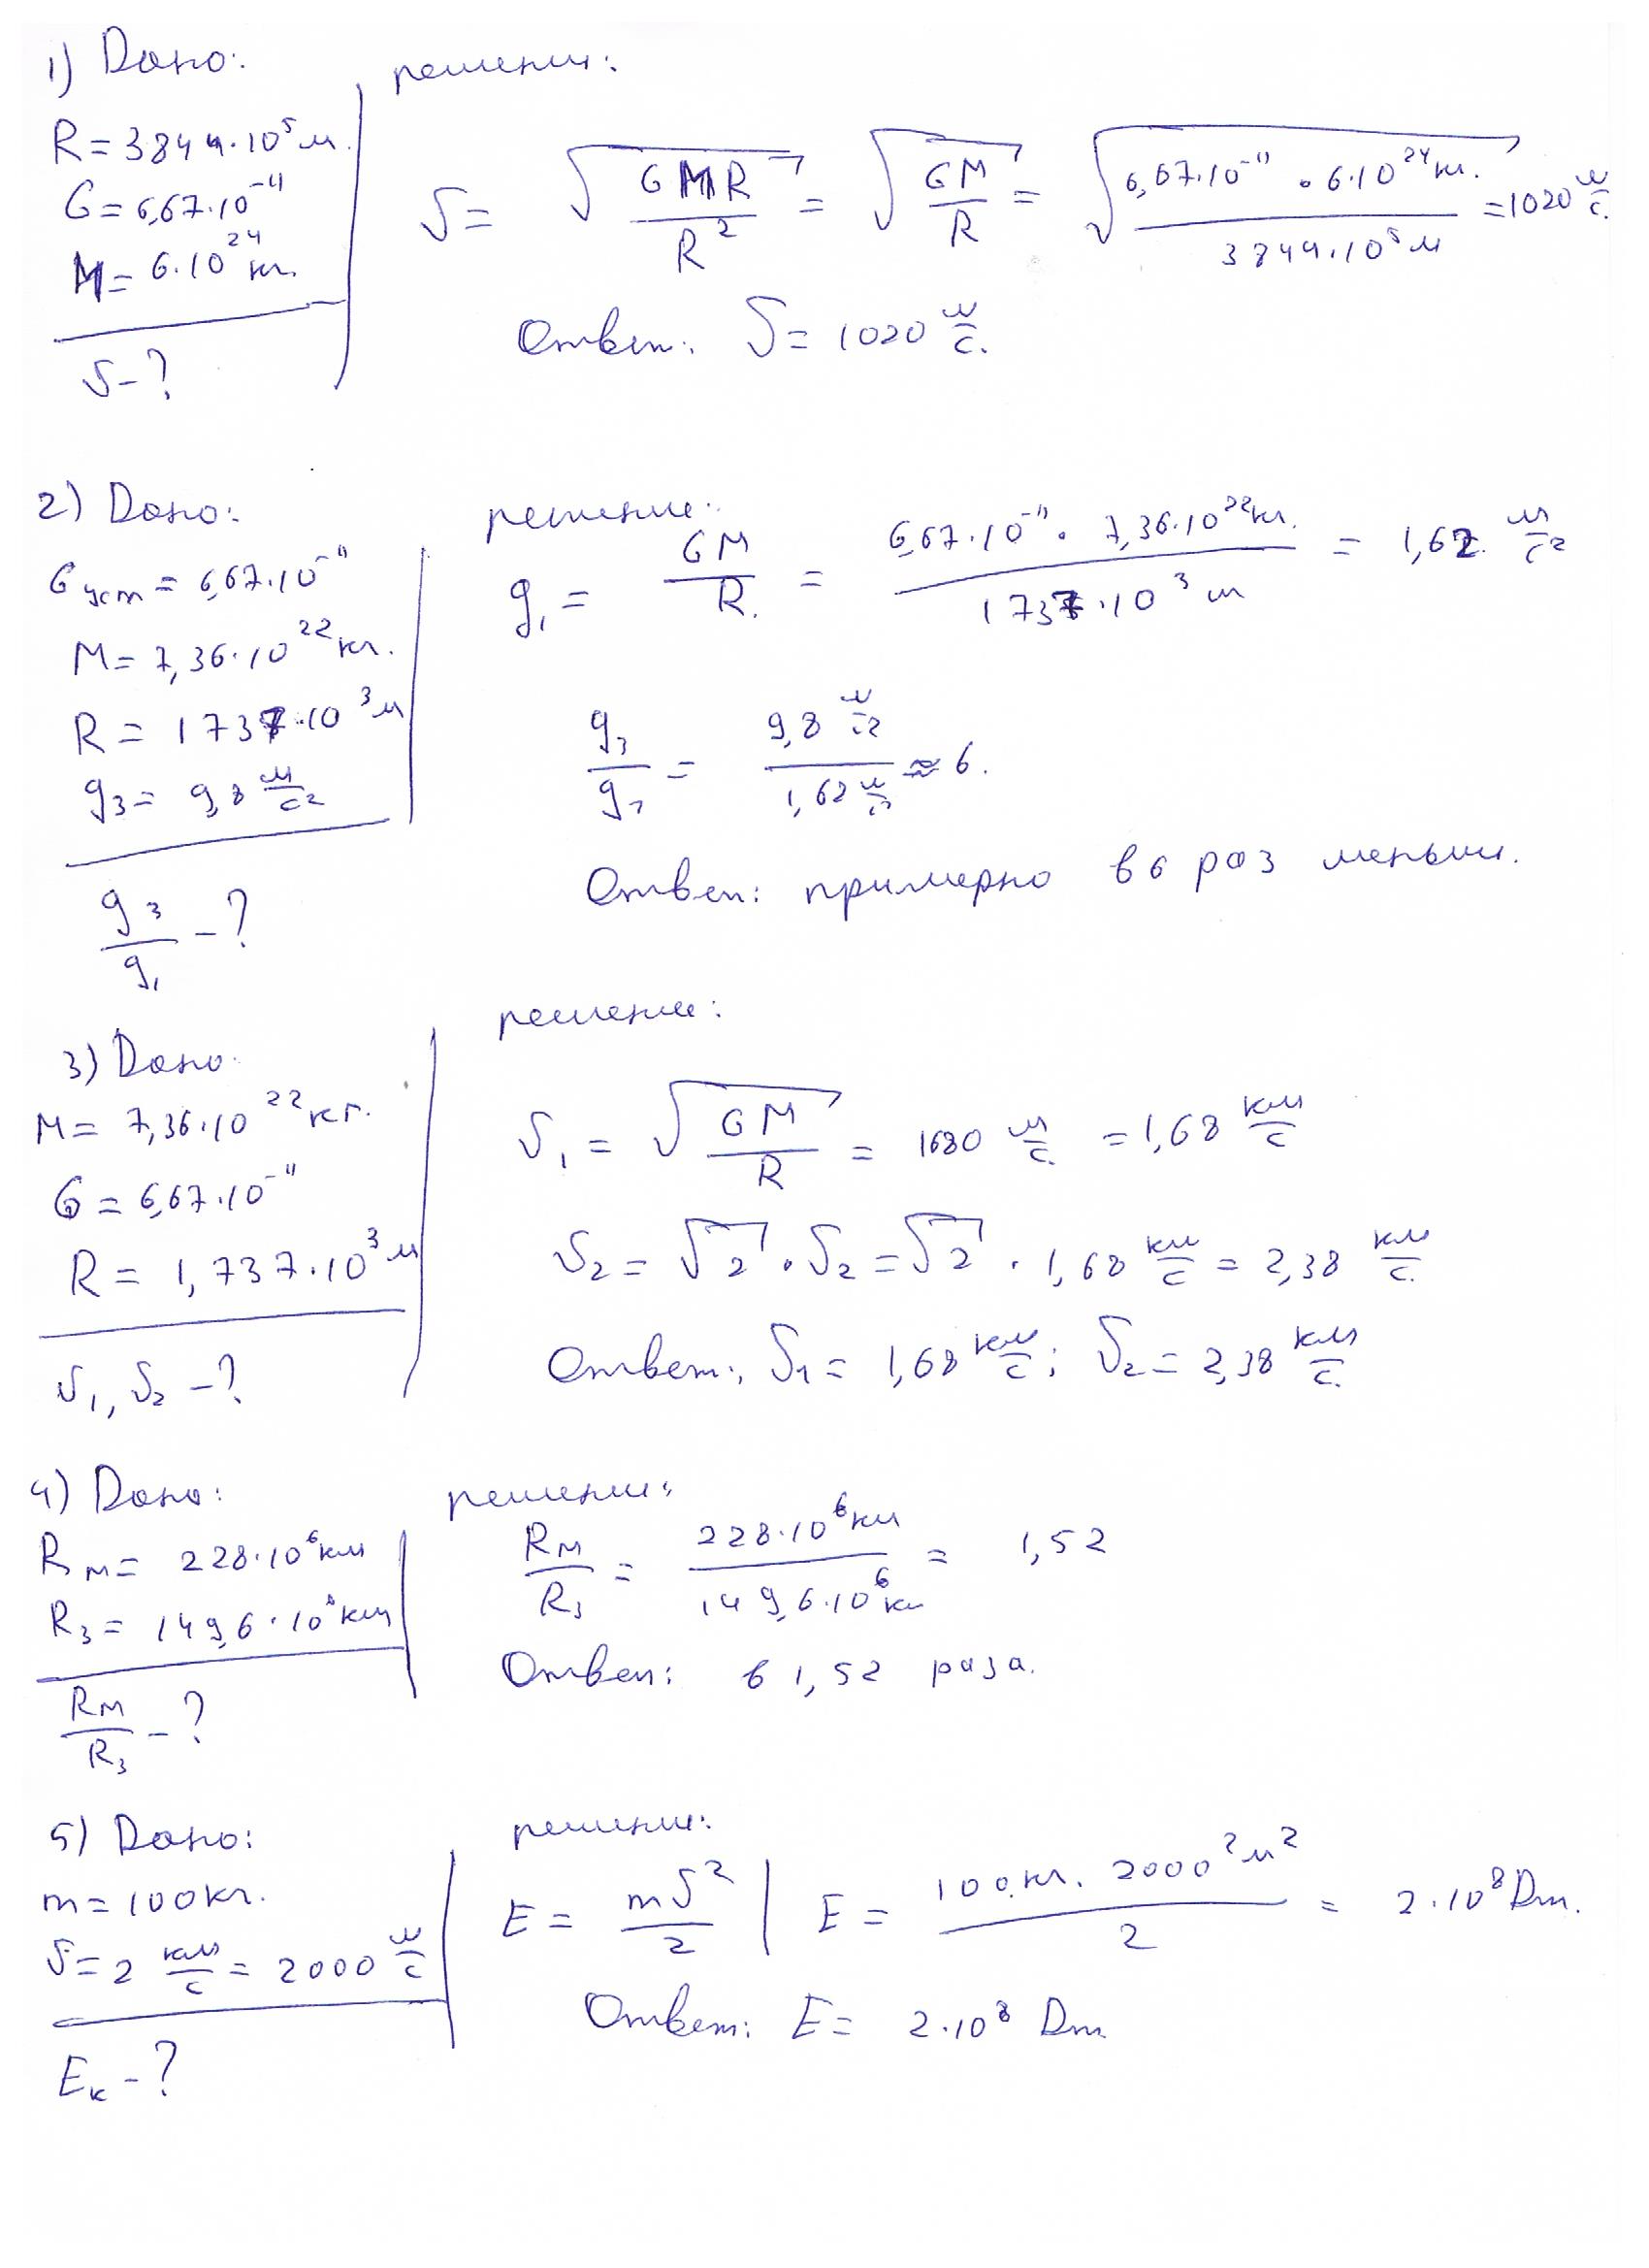 1) Дано: решения:
R = 3844·10⁵ м.
G = 6,67·10⁻¹¹
M = 6·10²⁴ кг.
υ - ?
υ = √(GMR/R²) = √(GM/R) = √(6,67·10⁻¹¹ · 6·10²⁴ кг. / 3844·10⁵ м) = 1020 м/с.
Ответ: υ = 1020 м/с.
2) Дано: решение:
G уст = 6,67·10⁻¹¹
M = 7,36·10²² кг.
R = 1737·10³ м
g₃ = 9,8 м/с²
g₃/g₁ - ?
g₁ = GM/R. = 6,67·10⁻¹¹ · 7,36·10²² кг. / 1737·10³ м = 1,62 м/с²
g₃/g₁ = 9,8 м/с² / 1,62 м/с² ≈ 6.
Ответ: примерно в 6 раз меньше.
3) Дано: решение:
M = 7,36·10²² кг.
G = 6,67·10⁻¹¹
R = 1,737·10³ м
υ₁, υ₂ - ?
υ₁ = √(GM/R) = 1680 м/с. = 1,68 км/с
υ₂ = √2 · υ₂ = √2 · 1,68 км/с = 2,38 км/с.
Ответ: υ₁ = 1,68 км/с; υ₂ = 2,38 км/с.
4) Дано: решение:
Rм = 228·10⁶ км
R₃ = 149,6·10⁶ км
Rм/R₃ - ?
Rм/R₃ = 228·10⁶ км / 149,6·10⁶ км = 1,52
Ответ: в 1,52 раза.
5) Дано: решение:
m = 100 кг.
υ = 2 км/с = 2000 м/с
Eк - ?
E = mυ²/2 | E = 100 кг. 2000² м² / 2 = 2·10⁸ Дж.
Ответ: E = 2·10⁸ Дж